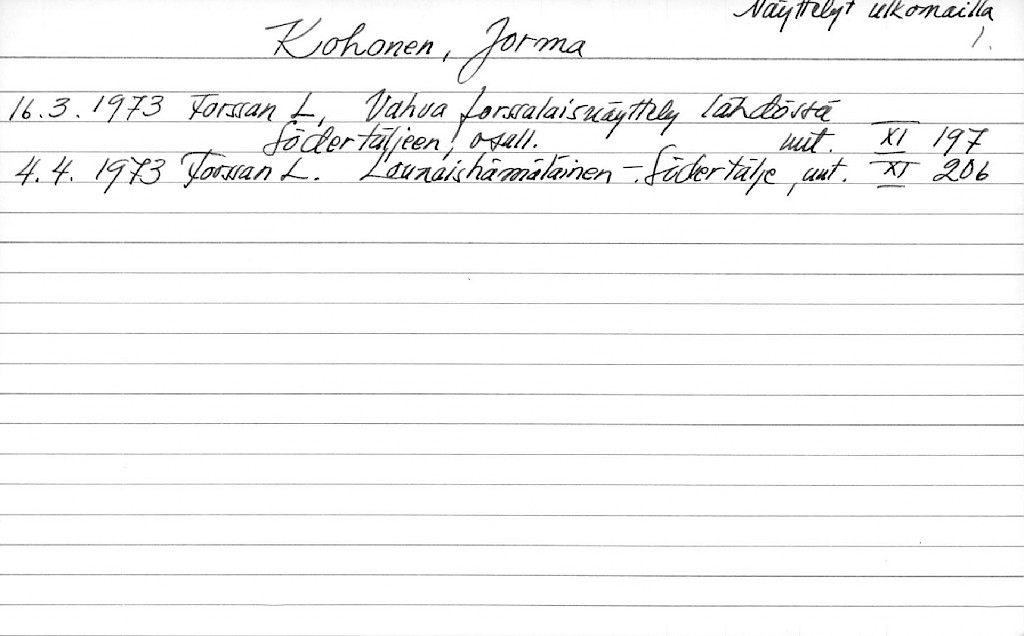 Näyttelyt ulkomailla
1.
Kohonen, Jorma
16.3.1973 Forssan L, Vahva forssalaisnäyttely lähdössä
Södertäljeen, osall. uut. XI 197
4.4.1973 Forssan L. Lounaishämäläinen -. Södertälje, uut. XI 206